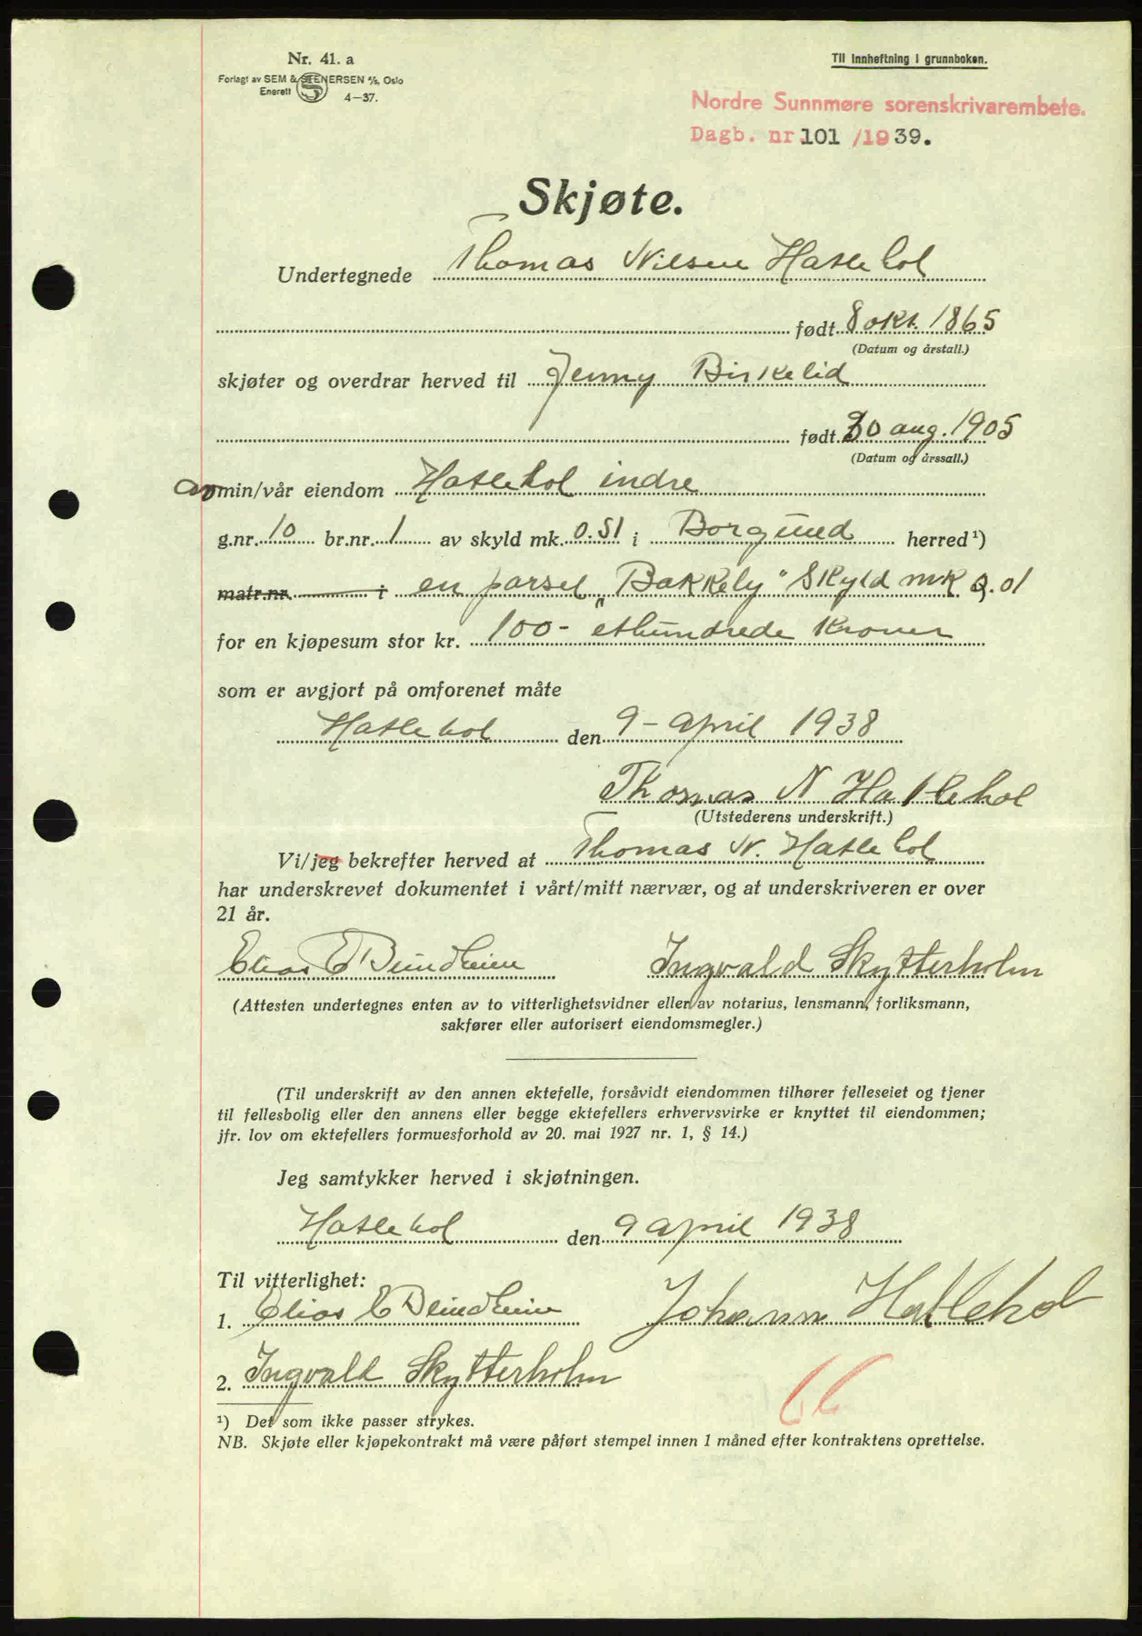 Nr. 41. a
Til innheftning i grunnboken.
Forlagt av SEM & STENERSEN A/S, Oslo
Enerett 4-37.
Nordre Sunnmøre sorenskrivarembete.
Dagb. nr. 101 /1939.
Skjøte.
Undertegnede Thomas Nilsen Hatlehol
født 8 okt. 1865
(Datum og årstall.)
skjøter og overdrar herved til Jenny Birkelid
født 30 aug. 1905
(Datum og årssall.)
av min/vår eiendom Hatlehol indre
g.nr. 10 br.nr. 1 av skyld mk. 0.51 i Borgund herred¹)
matr.nr. i en parsel "Bakkely" Skyld mk 0.01
for en kjøpesum stor kr. 100- ethundrede kroner
som er avgjort på omforenet måte
Hatlehol den 9 - april 1938
Thomas N Hatlehol
(Utstederens underskrift.)
Vi/jeg bekrefter herved at Thomas N. Hatlehol
har underskrevet dokumentet i vårt/mitt nærvær, og at underskriveren er over
21 år.
Elias E Blindheim Ingvald Skytterholm
(Attesten undertegnes enten av to vitterlighetsvidner eller av notarius, lensmann, forliksmann,
sakfører eller autorisert eiendomsmegler.)
(Til underskrift av den annen ektefelle, forsåvidt eiendommen tilhører felleseiet og tjener
til fellesbolig eller den annens eller begge ektefellers erhvervsvirke er knyttet til eiendommen;
jfr. lov om ektefellers formuesforhold av 20. mai 1927 nr. 1, § 14.)
Jeg samtykker herved i skjøtningen.
Hatlehol den 9 april 1938
Til vitterlighet:
1. Elias E Blindheim Johann Hatlehol
2. Ingvald Skytterholm
¹) Det som ikke passer strykes.
NB. Skjøte eller kjøpekontrakt må være påført stempel innen 1 måned efter kontraktens oprettelse.